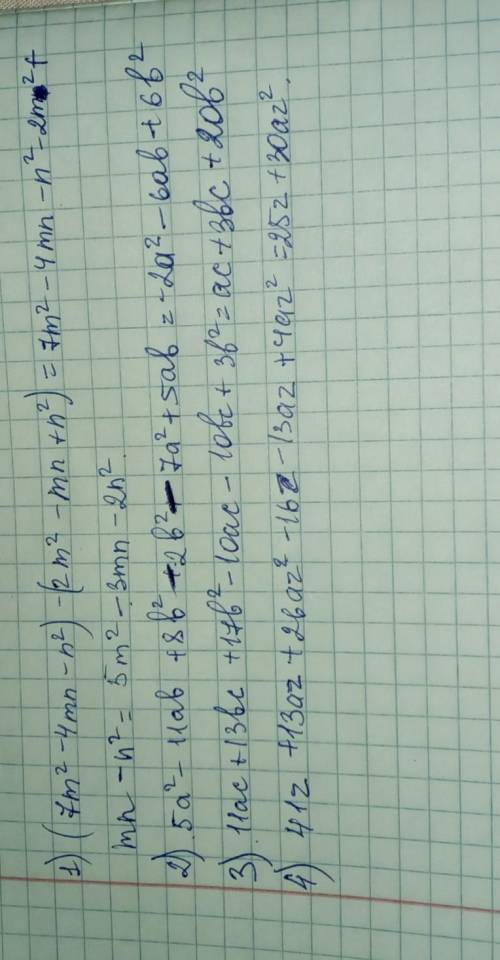 1) (7m² - 4mn - n²) - (2m² - mn + n²) = 7m² - 4mn - n² - 2m² +
mn - n² = 5m² - 3mn - 2n²
2) 5a² - 11ab + 8b² - 2b² - 7a² + 5ab = -2a² - 6ab + 6b²
3) 11ac + 13bc + 17b² - 10ac - 10bc + 3b² = ac + 3bc + 20b²
4) 41z + 13az + 26az² - 16z - 13az + 4az² = 25z + 30az².